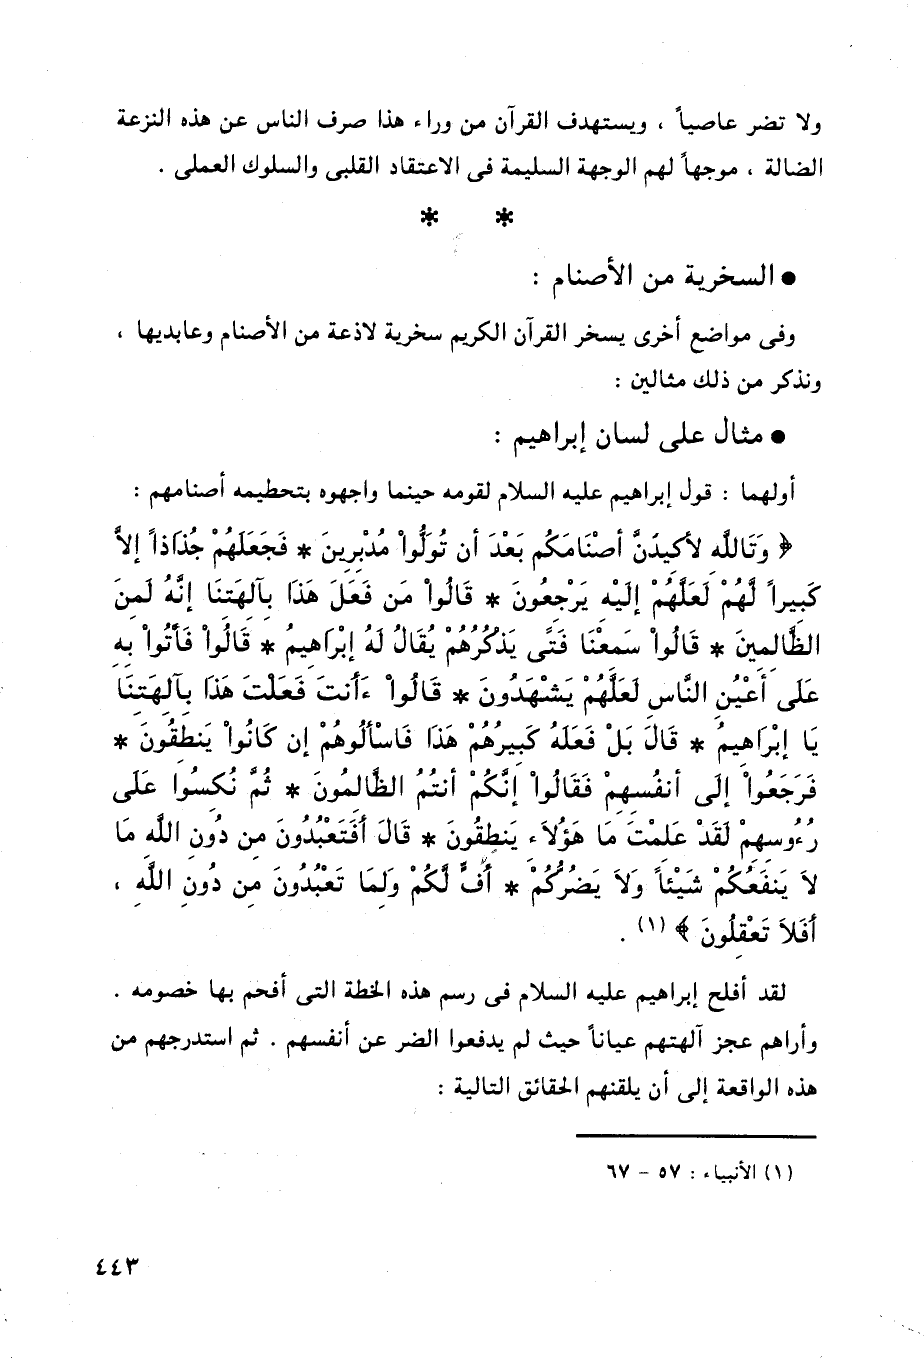 ولا تضر عاصياً ، ويستهدف القرآن من وراء هذا صرف الناس عن هذه النزعة
الضالة ، موجهاً لهم الوجهة السليمة فى الاعتقاد القلبى والسلوك العملى .
* *
● السخرية من الأصنام :
وفى مواضع أخرى يسخر القرآن الكريم سخرية لاذعة من الأصنام وعابديها ،
ونذكر من ذلك مثالين :
● مثال على لسان إبراهيم :
أولهما : قول إبراهيم عليه السلام لقومه حينما واجهوه بتحطيمه أصنامهم :
﴿ وَتَاللَّهِ لأَكِيدَنَّ أَصْنَامَكُم بَعْدَ أَن تُوَلُّواْ مُدْبِرِينَ * فَجَعَلَهُمْ جُذَاذاً إِلاَّ
كَبِيراً لَّهُمْ لَعَلَّهُمْ إِلَيْهِ يَرْجِعُونَ * قَالُواْ مَن فَعَلَ هَذَا بِآلِهَتِنَا إِنَّهُ لَمِنَ
الظَّالِمِينَ * قَالُواْ سَمِعْنَا فَتًى يَذْكُرُهُمْ يُقَالُ لَهُ إِبْرَاهِيمُ * قَالُواْ فَأْتُواْ بِهِ
عَلَى أَعْيُنِ النَّاسِ لَعَلَّهُمْ يَشْهَدُونَ * قَالُواْ ءَأَنتَ فَعَلْتَ هَذَا بِآلِهَتِنَا
يَا إِبْرَاهِيمُ * قَالَ بَلْ فَعَلَهُ كَبِيرُهُمْ هَذَا فَاسْأَلُوهُمْ إِن كَانُواْ يَنطِقُونَ *
فَرَجَعُواْ إِلَى أَنفُسِهِمْ فَقَالُواْ إِنَّكُمْ أَنتُمُ الظَّالِمُونَ * ثُمَّ نُكِسُوا عَلَى
رُءُوسِهِمْ لَقَدْ عَلِمْتَ مَا هَؤُلاَءِ يَنطِقُونَ * قَالَ أَفَتَعْبُدُونَ مِن دُونِ اللَّهِ مَا
لاَ يَنفَعُكُمْ شَيْئاً وَلاَ يَضُرُّكُمْ * أُفٍّ لَّكُمْ وَلِمَا تَعْبُدُونَ مِن دُونِ اللَّهِ ،
أَفَلاَ تَعْقِلُونَ ﴾ (١) .
لقد أفلح إبراهيم عليه السلام فى رسم هذه الخطة التى أفحم بها خصومه .
وأراهم عجز آلهتهم عياناً حيث لم يدفعوا الضر عن أنفسهم . ثم استدرجهم من
هذه الواقعة إلى أن يلقنهم الحقائق التالية :
(١) الأنبياء : ٥٧ – ٦٧
٤٤٣